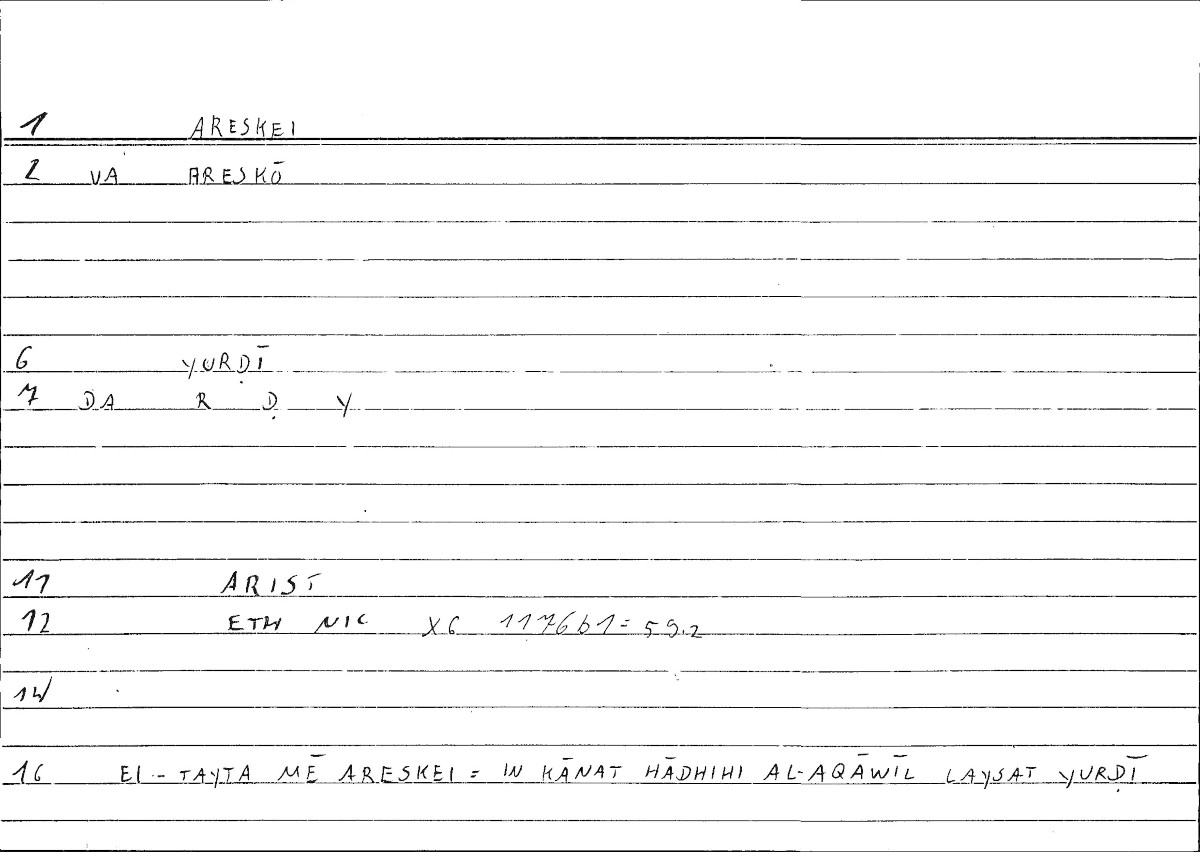 1 ARESKEI
2 VA ARESKŌ
6 YURḌĪ
7 DA R Ḍ Y
11 ARIST
12 ETH NIC X6 1176b1=59.2
14
16 EI - TAYTA MĒ ARESKEI = IN KĀNAT HĀDHIHI AL-AQĀWĪL LAYSAT YURḌĪ